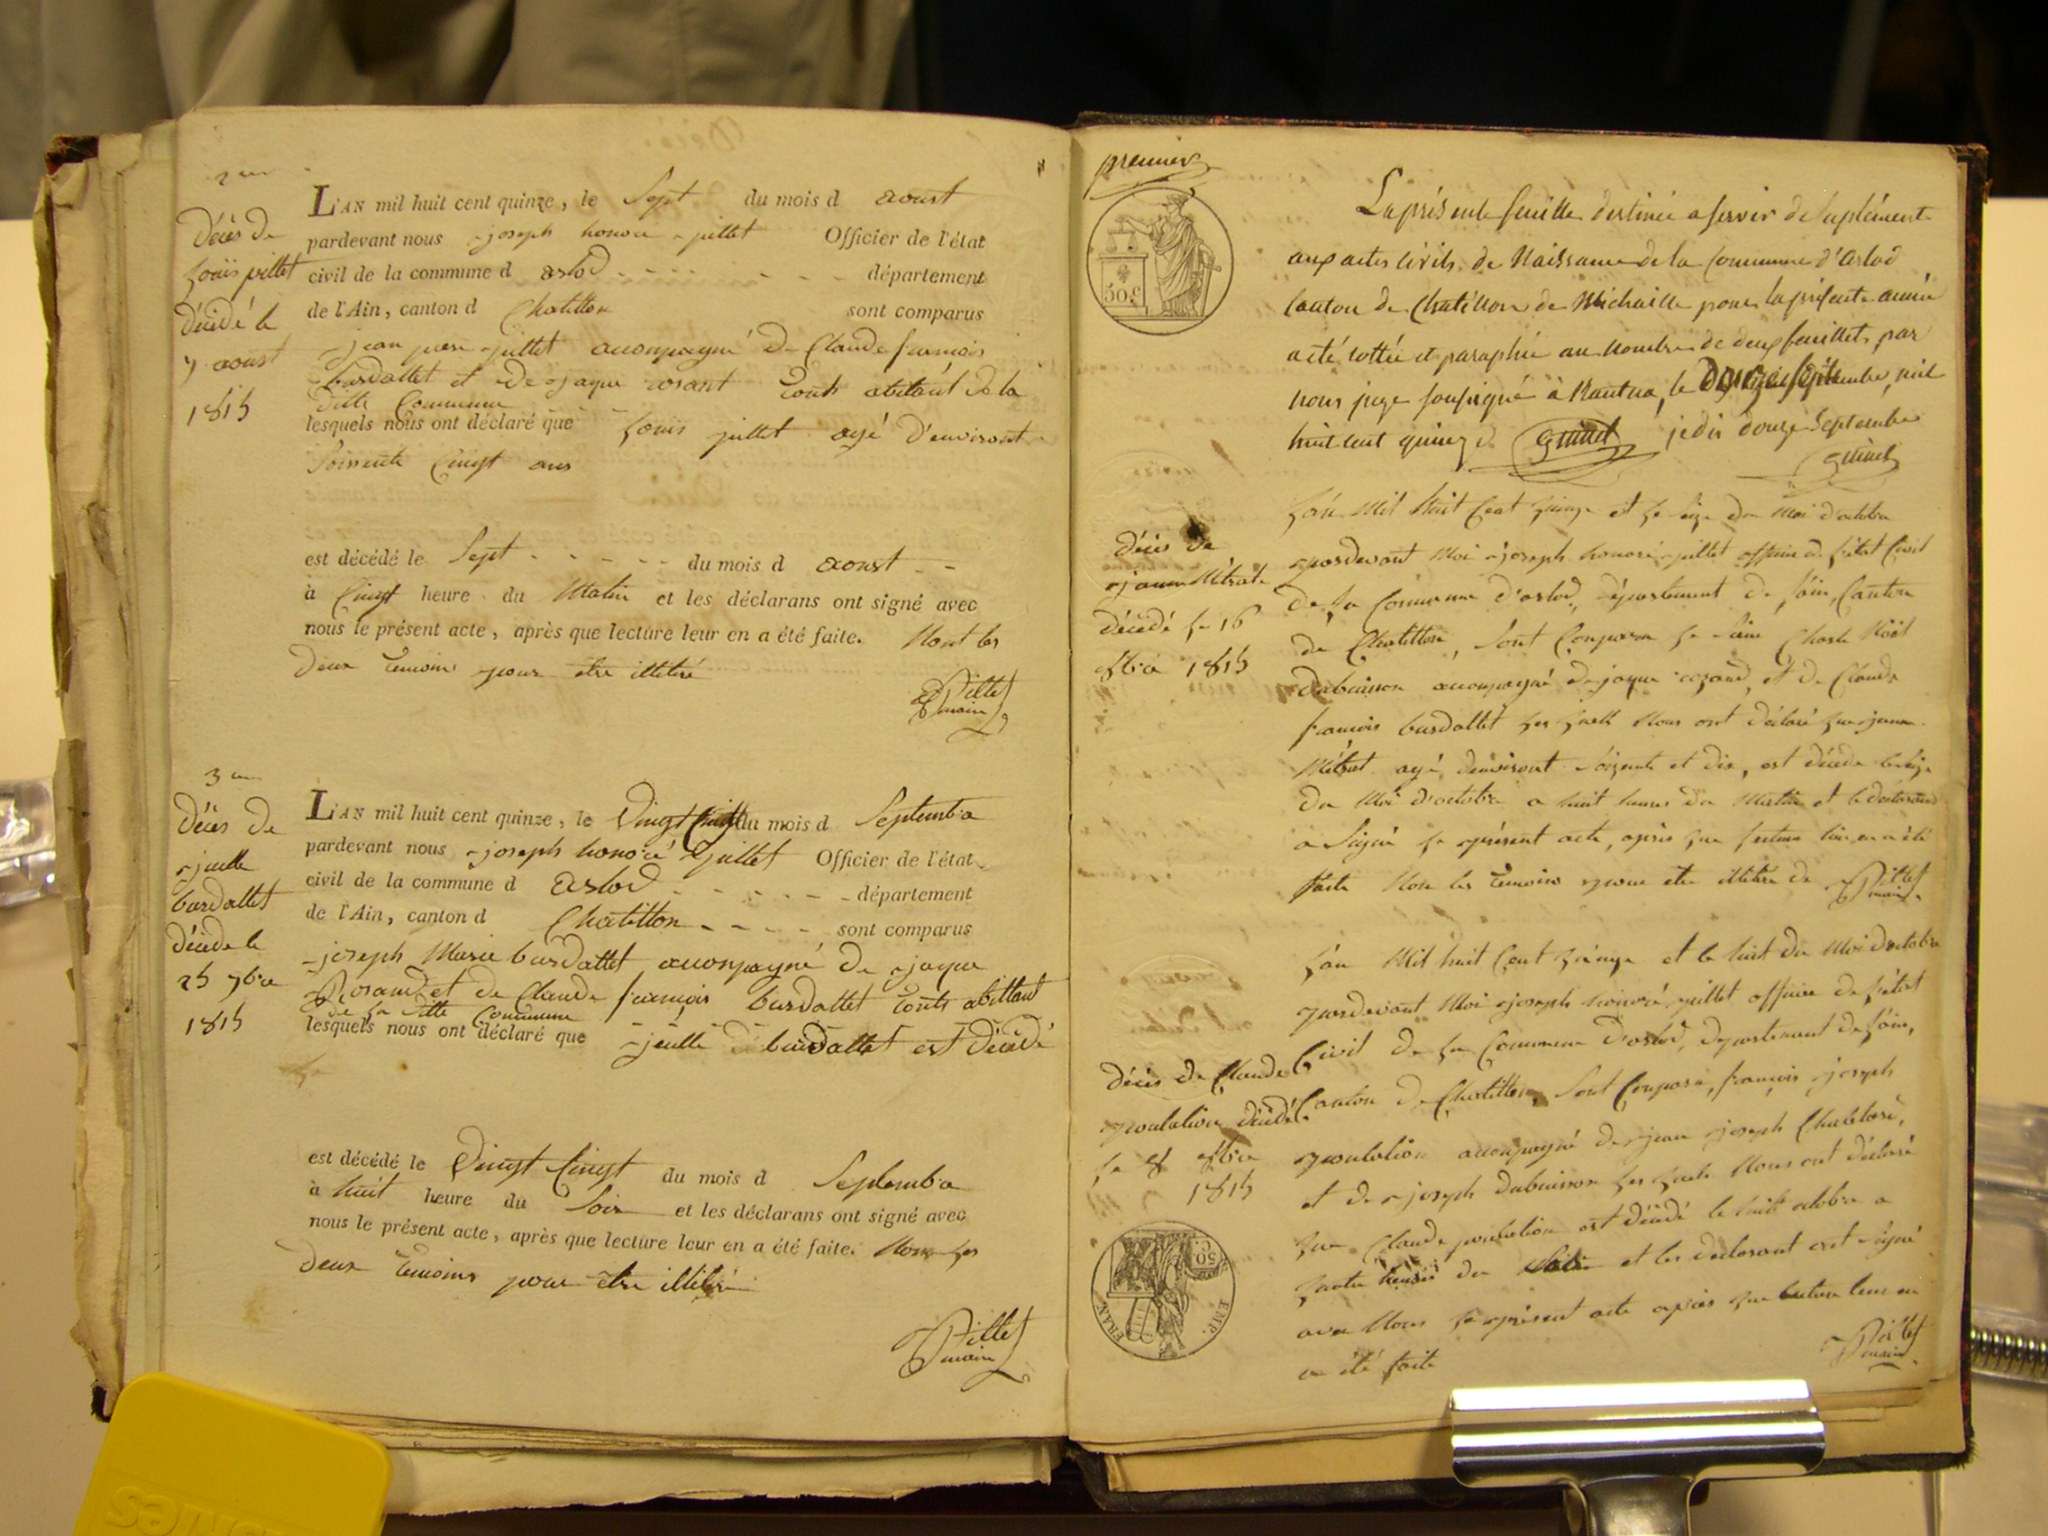 2me
Décès de
Louis pillet
décédé le
7 aoust
1815
L'AN mil huit cent quinze, le Sept du mois d aoust
pardevant nous joseph honoré pillet Officier de l'état
civil de la commune d arlod département
de l'Ain, canton d Chatillon sont comparus
jean pierre pillet acconpagné de Claude francois
burdallet et de jaque rosant touts abitant de la
ditte Commune
lesquels nous ont déclaré que Louis pillet agé d'environt
Soissente Cinqt ans
est décédé le Sept du mois d aoust
à Cinqt heure du Matin et les déclarans ont signé avec
nous le présent acte, après que lecture leur en a été faite. Nont les
deux temoins pour etre illitéré
Pillet
maire
3me
Décès de
burdallet
décédé le
25 7bre
1815
L'AN mil huit cent quinze, le Vingt Cinqt du mois d Septembre
pardevant nous joseph honoré pillet Officier de l'état
civil de la commune d Arlod département
de l'Ain, canton d Chatillon sont comparus
joseph Marie burdallet acconpagné de jaque
Rosand et de Claude françois burdallet touts abittant
de la ditte Commune
lesquels nous ont déclaré que burdallet est décédé
est décédé le Vingt Cinqt du mois d Septembre
à huit heure du Soir et les déclarans ont signé avec
nous le présent acte, après que lecture leur en a été faite. Non les
deux temoins pour etre illitéré
Pillet
maire
premier
50 c
La présente feuille destinée a servir de Suplément
aux actes civils de Naissance de la Commune d'Arlod
Canton de Chatillon de Michaille pour la présente année
a été cottée et paraphée au nombre de deux feuillets par
nous juge soussigné à Nantua, le Septembre mil
huit cent quinze. je dis douze Septembre
décès de
décédé le 16
8bre 1815
L'an Mil huit Cent quinze et le seize du Moi d'octobre
pardevant Moi joseph honoré pillet officier de l'état Civil
de la Commune d'arlod, département de l'ain, Canton
de Chatillon, Sont Conparu le
dubuisson acconpagné de jaque rosand, et de Claude
francois burdallet les quels Nous ont déclaré que
agé denviront soizente et dix, est décédé le seize
du Moi d'octobre a huit heures du Matin et le déclarant
a Signé le présent acte, après que lecture leur en a été
faite Non les temoins pour etre illitéré
Pillet
maire
décès de Claude
décédé
le 8 8bre
1815
L'an Mil huit Cent quinze et le huit du Moi d'octobre
pardevant Moi joseph honoré pillet officier de l'état
Civil de la Commune d'arlod, département de l'ain,
Canton de Chatillon, Sont Conparu, françois joseph
acconpagné de jean joseph
et de joseph dubuisson les quels Nous ont déclaré
que Claude est décédé le huit octobre a
quatre heures du et les declarant ont signé
avec Nous le présent acte après que lecture leur en
a été faite
Pillet
maire
EMP. FRAN.
50 C.